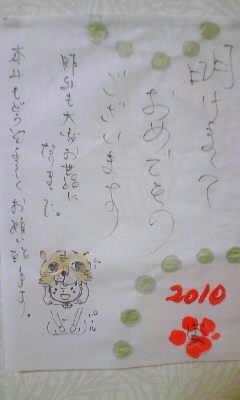 明けまして
おめでとう
ございます
昨年も大変お世話に
なりました。
今年もどうぞよろしくお願いします。
2010